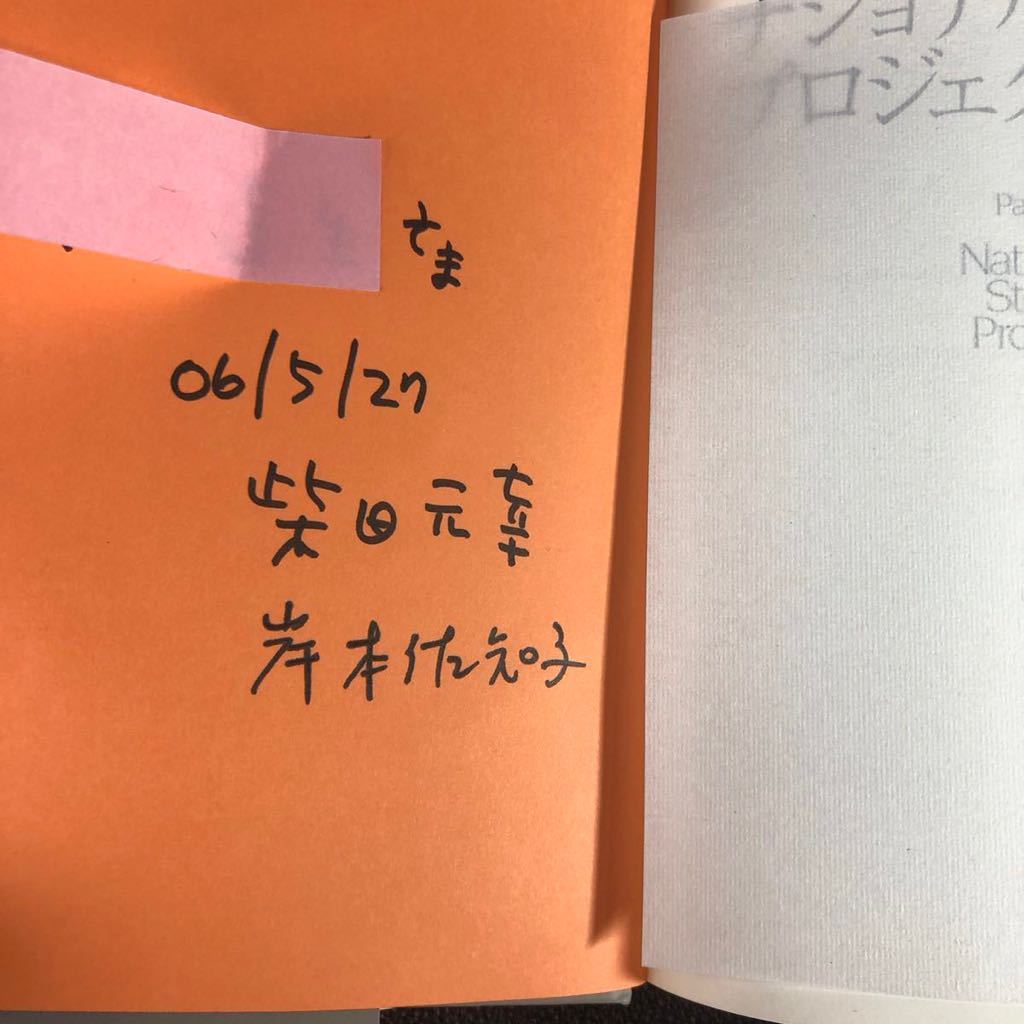 さま
06/5/27
柴田元幸
岸本佐知子
ナショナル
プロジェク
Pa
Nat
St
Pro